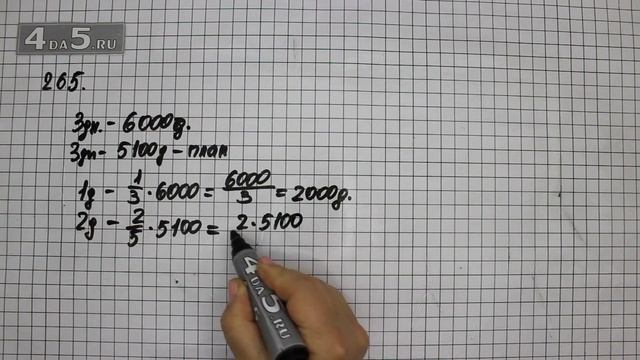 4DA5.RU
265.
3дн. - 6000д.
3дн - 5100д - план
1д - 1/3 · 6000 = 6000/3 = 2000д.
2д - 2/5 · 5100 = 2 · 5100
4DA5.RU